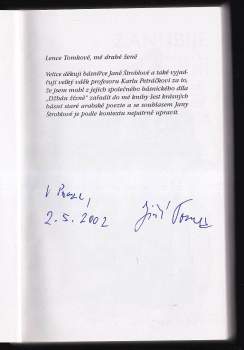 Lence Tomkové, mé drahé ženě
Velice děkuji básnířce Janě Štroblové a také vyjad-
řuji velký vděk profesoru Karlu Petráčkovi za to,
že jsem mohl z jejich společného básnického díla
„Džbán žízně“ zařadit do mé knihy šest krásných
básní staré arabské poezie a se souhlasem Jany
Štroblové je podle kontextu nepatrně upravit
V Praze,
2.5.2002
Jiří